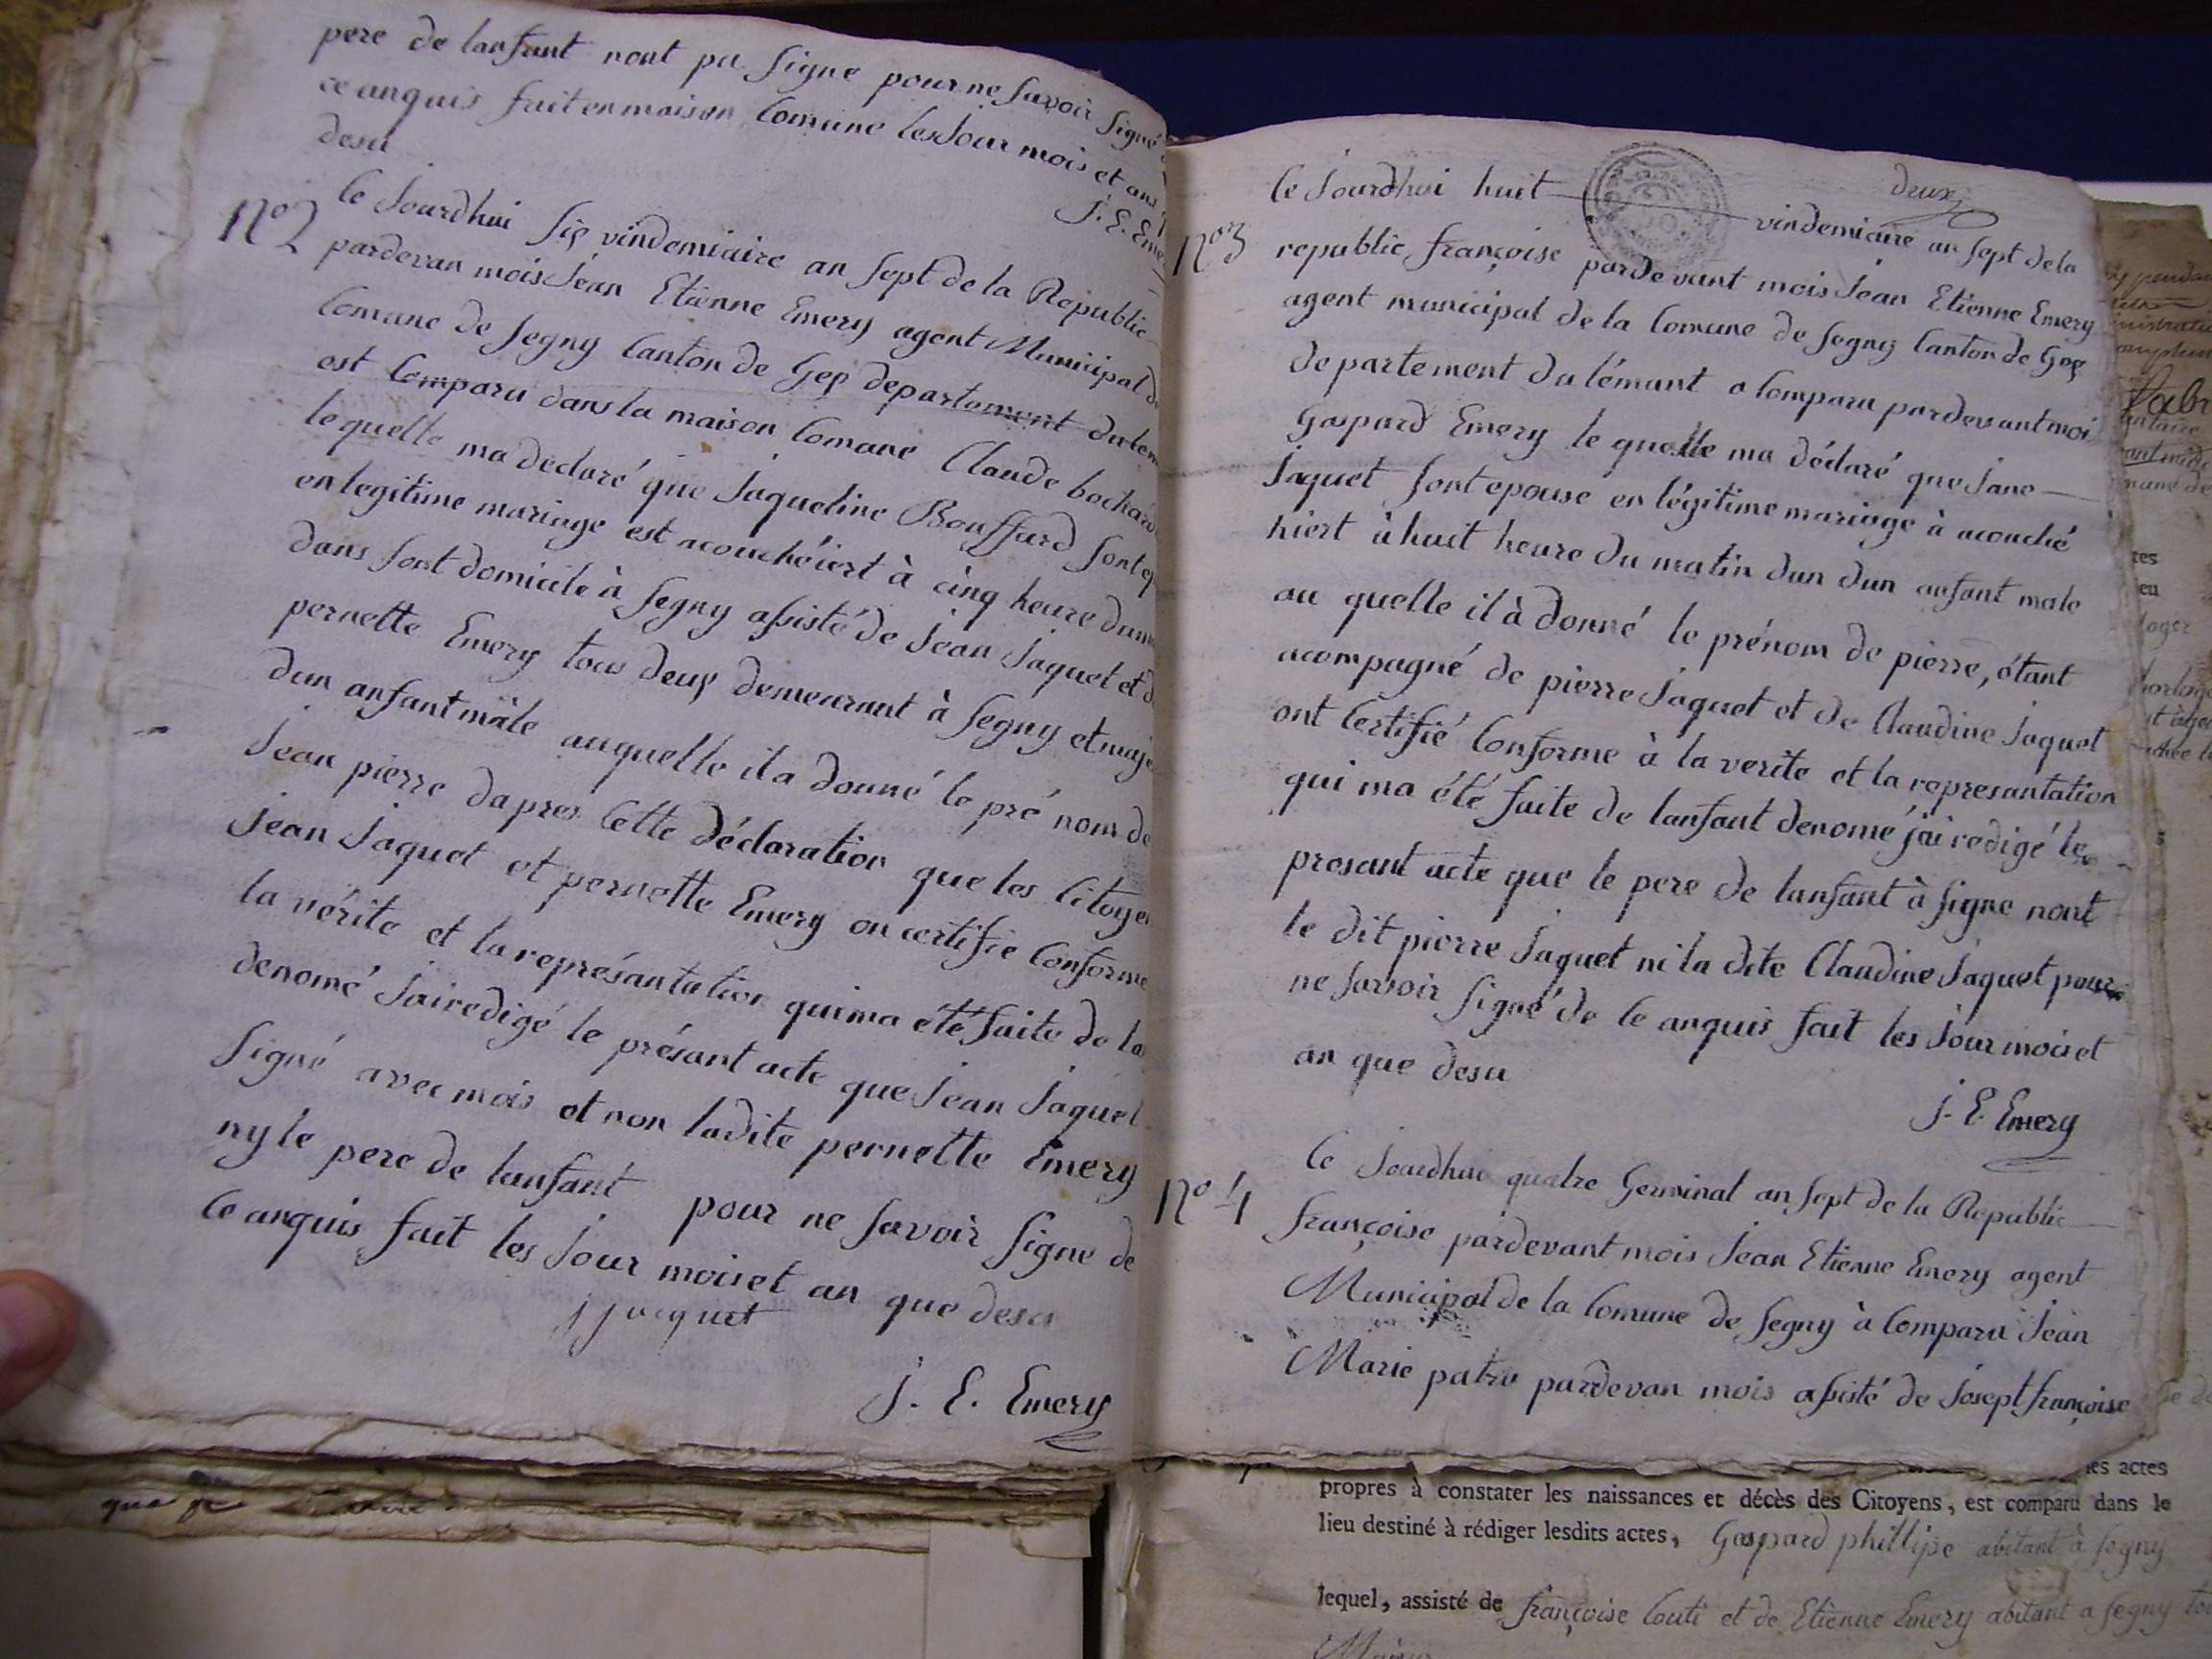 pere de lanfant nont pu signe pour ne savoir signé
ce anquis fait en maison Comune les Jour mois et ans
desu
J. E. Eme
N° 2
Ce Jourdhui six vindemiaire an sept de la Republic
pardevan mois Jean Etienne Emery agent Municipal d
Comune de Segny Canton de Gex departement du lem
est Comparu dans la maison Comune Claude bochard
le quelle ma declaré que Jaqueline Bouffard sont ep
en legitime mariage est acouché iert à cinq heure du m
dans sont domicile à Segny assisté de Jean Jaquet et d
pernette Emery tous deux demeurant à Segny et maje
dun anfant mâle auquelle il a donné le pré nom de
Jean pierre dapres Cette déclaration que les Citoye
Jean Jaquet et pernette Emery on certifie Conforme
la vérite et la représantation qui ma été faite de la
denomé Jai redigé le présant acte que Jean Jaquet
signé avec mois et non ladite pernette Emery
ny le pere de lanfant pour ne savoir signe de
Ce anquis fait les Jour mois et an que desu
j jacquet
J. E. Emery
deux
N° 3
Ce Jourdhui huit vindemiaire an sept de la
republic françoise pardevant mois Jean Etienne Emery
agent municipal de la Comune de Segny Canton de Gex
departement du lémant a Comparu pardevant moi
Gaspard Emery le quelle ma déclaré que Jane
Jaquet sont epouse en légitime mariage à acouché
hiert à huit heure du matin dun dun anfant male
au quelle il à donné le prénom de pierre, étant
acompagné de pierre Jaquet et de Claudine Jaquet
ont Certifié Conforme à la verite et la represantation
qui ma été faite de lanfant denomé jai redigé le
presant acte que le pere de lanfant à signe nont
le dit pierre Jaquet ni la dite Claudine Jaquet pour
ne savoir signé de Ce anquis fait les Jour mois et
an que desu
J. E. Emery
N° 4
Ce Jourdhui quatre Germinal an sept de la Republic
françoise pardevant mois Jean Etienne Emery agent
Municipal de la Comune de Segny à Comparu Jean
Marie patru pardevan mois assisté de Josept françoise
les actes
propres à constater les naissances et décès des Citoyens, est comparu dans le
lieu destiné à rédiger lesdits actes, Gaspard phillipe abitant à Segny
lequel, assisté de françoise Couti et de Etienne Emery abitant a Segny